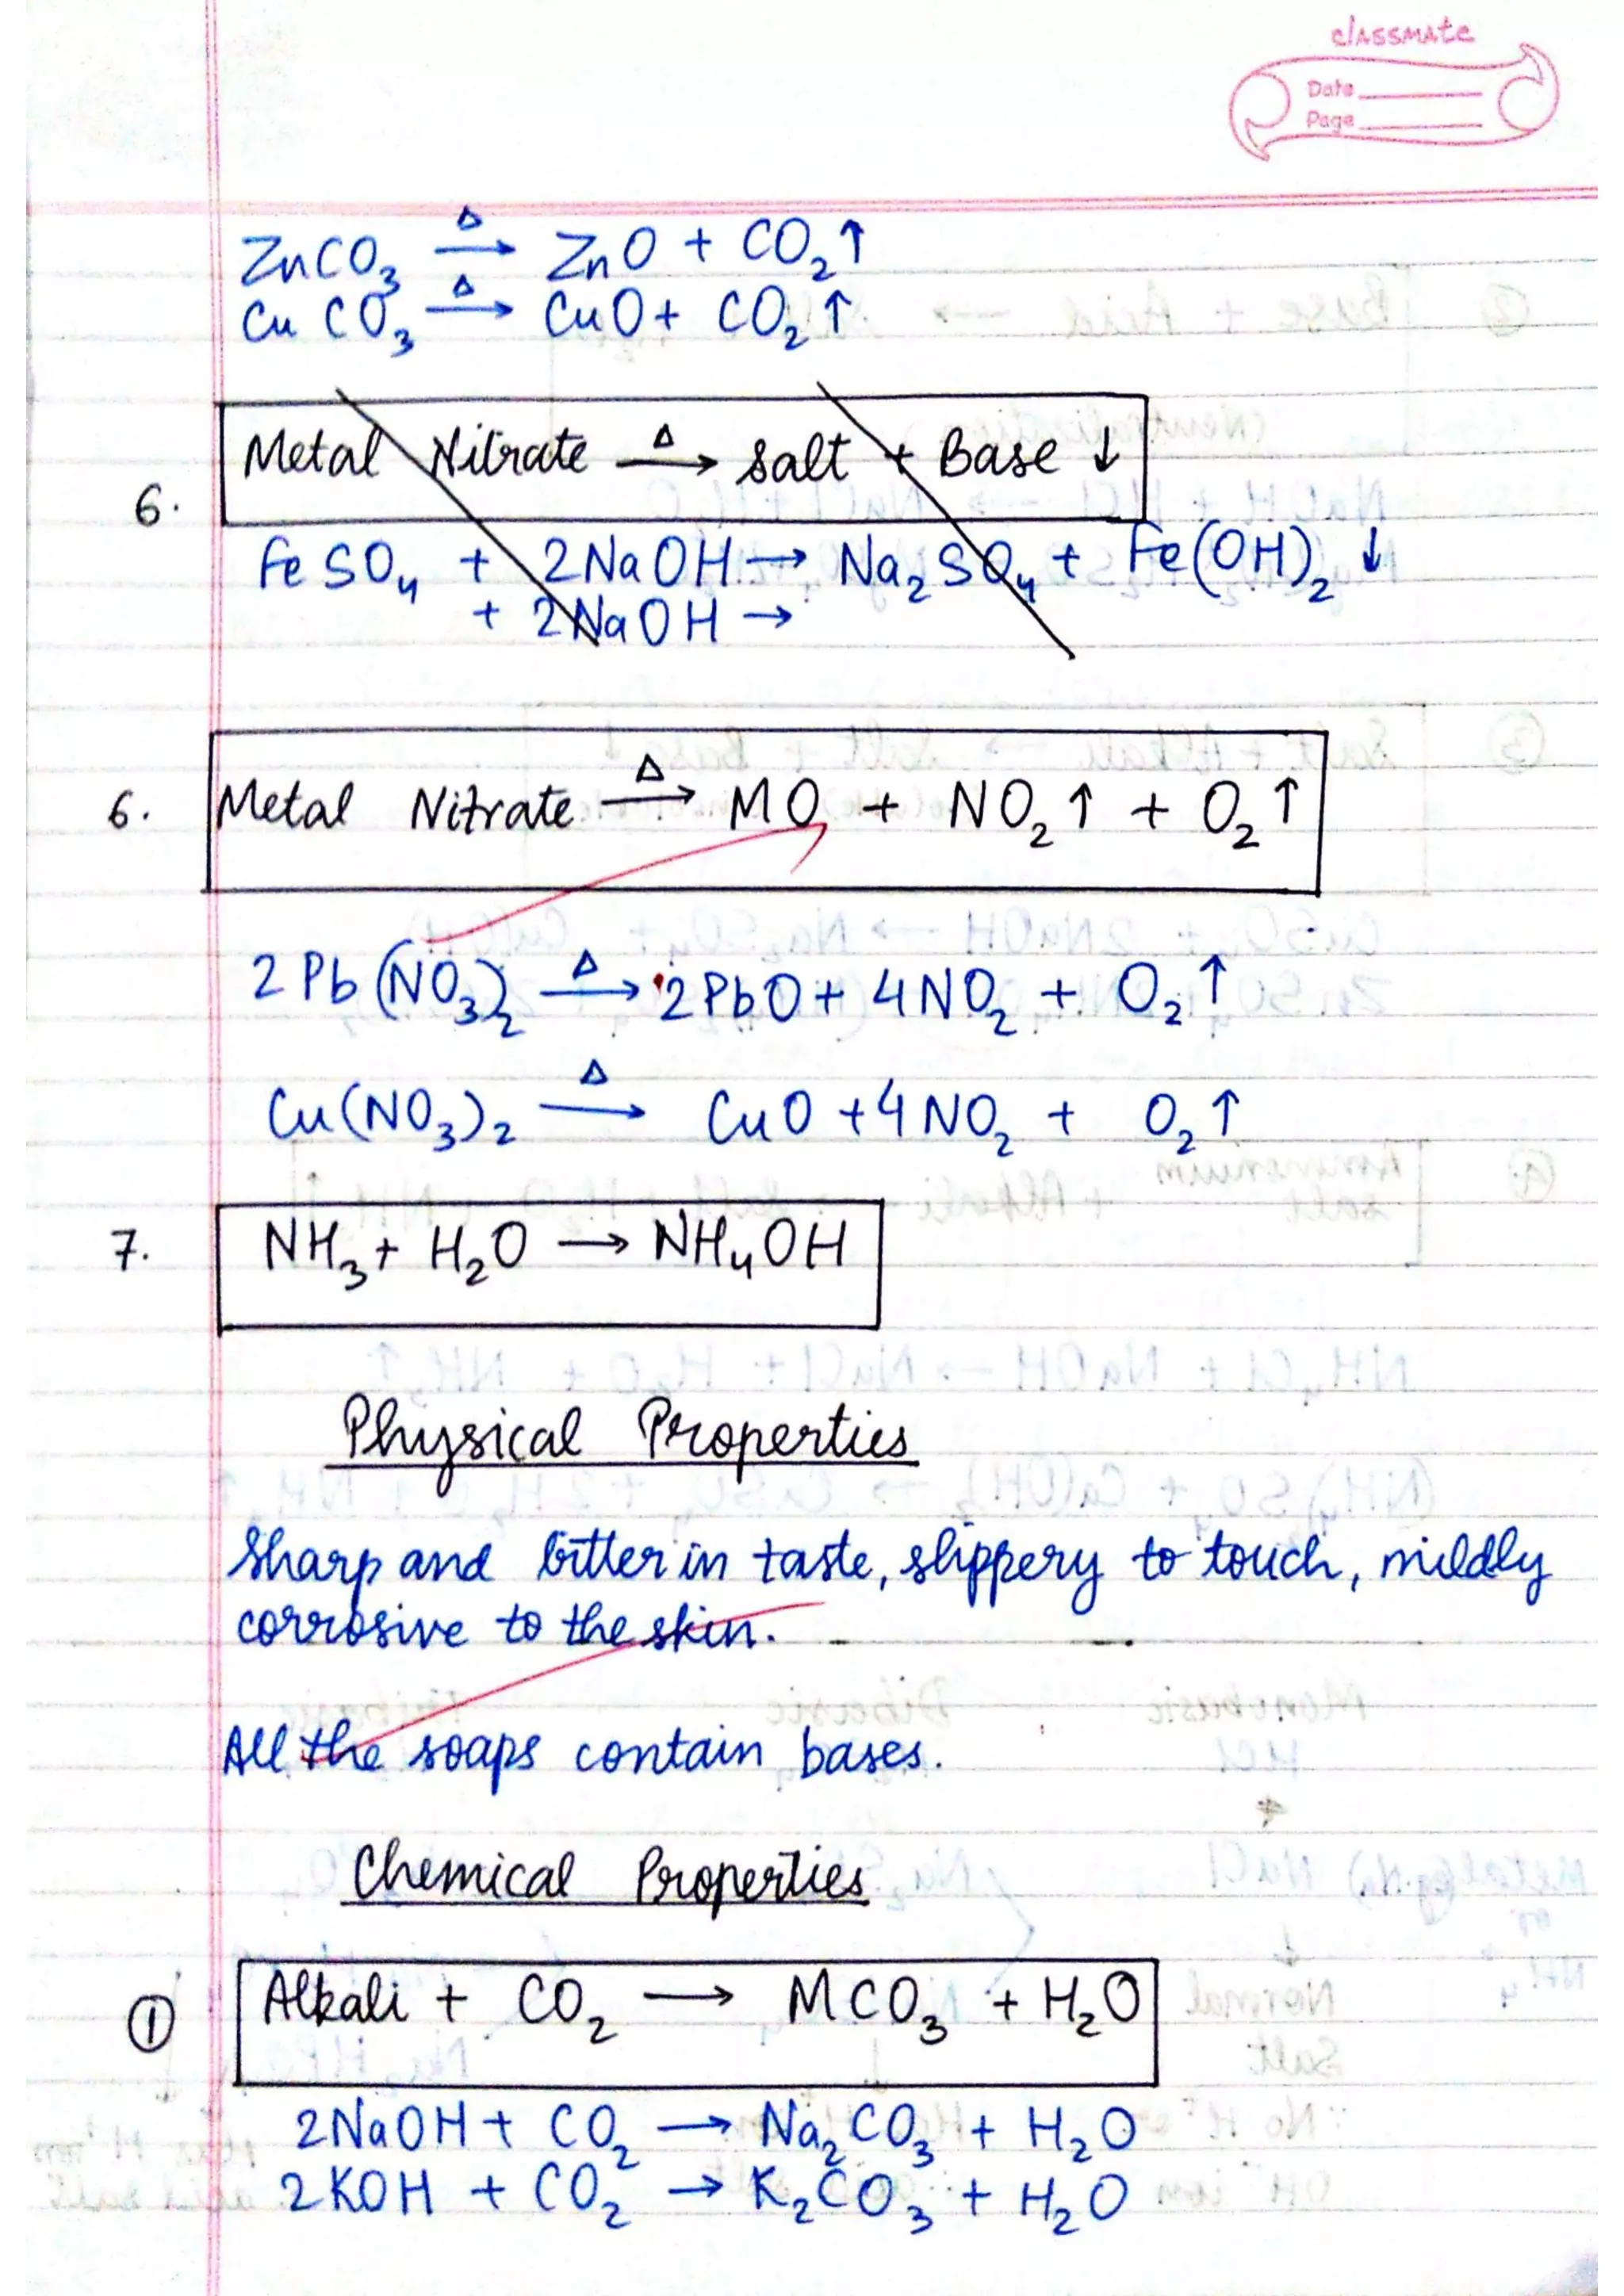 classmate
Date
Page
ZnCO₃ —Δ→ ZnO + CO₂↑
CuCO₃ —Δ→ CuO + CO₂↑
Metal Nitrate —Δ→ salt + Base ↓
6.
FeSO₄ + 2NaOH → Na₂SO₄ + Fe(OH)₂ ↓
+ 2NaOH →
6. Metal Nitrate —Δ→ MO + NO₂↑ + O₂↑
2Pb(NO₃)₂ —Δ→ 2PbO + 4NO₂ + O₂↑
Cu(NO₃)₂ —Δ→ CuO + 4NO₂ + O₂↑
7. NH₃ + H₂O → NH₄OH
Physical Properties
Sharp and bitter in taste, slippery to touch, mildly
corrosive to the skin.
All the soaps contain bases.
Chemical Properties
① Alkali + CO₂ → MCO₃ + H₂O
2NaOH + CO₂ → Na₂CO₃ + H₂O
2KOH + CO₂ → K₂CO₃ + H₂O